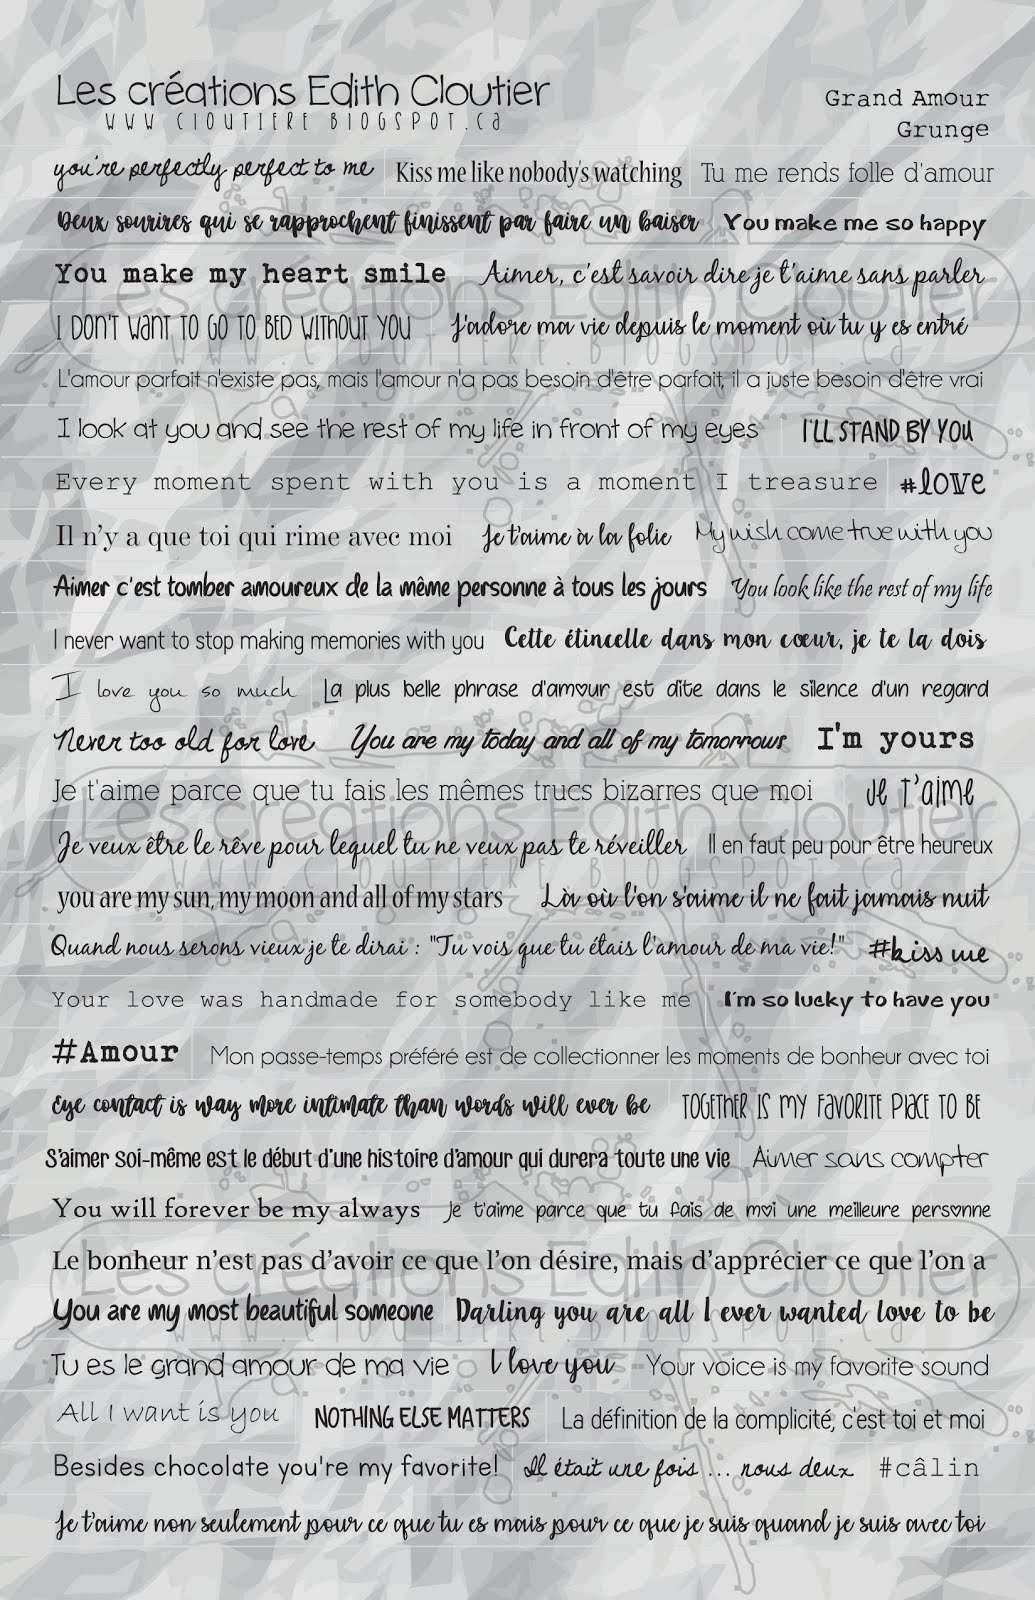 Les créations Edith Cloutier
www.cloutiere.blogspot.ca
Grand Amour
Grunge
you're perfectly perfect to me Kiss me like nobody's watching Tu me rends folle d'amour
Deux sourires qui se rapprochent finissent par faire un baiser You make me so happy
You make my heart smile Aimer, c'est savoir dire je t'aime sans parler
I DON'T WANT TO GO TO BED WITHOUT YOU J'adore ma vie depuis le moment où tu y es entré
L'amour parfait n'existe pas, mais l'amour n'a pas besoin d'être parfait, il a juste besoin d'être vrai
I look at you and see the rest of my life in front of my eyes I'LL STAND BY YOU
Every moment spent with you is a moment I treasure #love
Il n'y a que toi qui rime avec moi Je t'aime à la folie My wish come true with you
Aimer c'est tomber amoureux de la même personne à tous les jours You look like the rest of my life
I never want to stop making memories with you Cette étincelle dans mon cœur, je te la dois
I love you so much La plus belle phrase d'amour est dite dans le silence d'un regard
Never too old for love You are my today and all of my tomorrows I'm yours
Je t'aime parce que tu fais les mêmes trucs bizarres que moi Je t'aime
Je veux être le rêve pour lequel tu ne veux pas te réveiller Il en faut peu pour être heureux
you are my sun, my moon and all of my stars Là où l'on s'aime il ne fait jamais nuit
Quand nous serons vieux je te dirai : "Tu vois que tu étais l'amour de ma vie!" #kiss me
Your love was handmade for somebody like me I'm so lucky to have you
#Amour Mon passe-temps préféré est de collectionner les moments de bonheur avec toi
Eye contact is way more intimate than words will ever be TOGETHER IS MY FAVORITE PLACE TO BE
S'aimer soi-même est le début d'une histoire d'amour qui durera toute une vie Aimer sans compter
You will forever be my always Je t'aime parce que tu fais de moi une meilleure personne
Le bonheur n'est pas d'avoir ce que l'on désire, mais d'apprécier ce que l'on a
You are my most beautiful someone Darling you are all I ever wanted love to be
Tu es le grand amour de ma vie I love you Your voice is my favorite sound
All I want is you NOTHING ELSE MATTERS La définition de la complicité, c'est toi et moi
Besides chocolate you're my favorite! Il était une fois ... nous deux #câlin
Je t'aime non seulement pour ce que tu es mais pour ce que je suis quand je suis avec toi